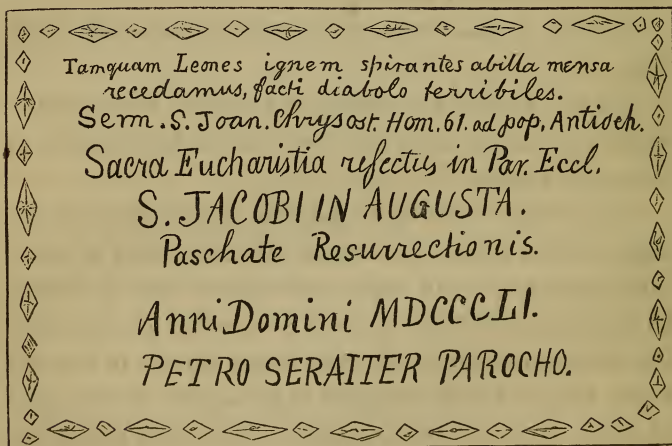 Tamquam Leones ignem spirantes abilla mensa
recedamus, facti diabolo terribiles.
Serm. S. Joan. Chrysost. Hom. 61. ad pop. Antioch.
Sacra Eucharistia refectus in Par. Eccl.
S. JACOBI IN AUGUSTA.
Paschate Resurrectionis.
Anni Domini MDCCCLI.
PETRO SERAITER PAROCHO.